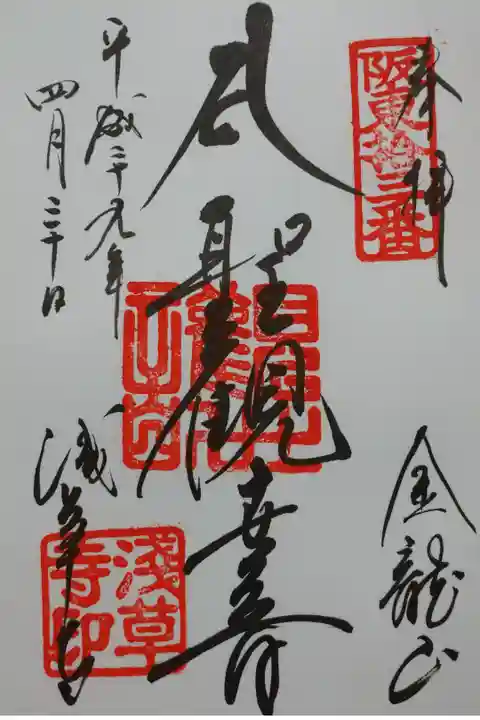 奉拝
阪東拾三番
金龍山
聖觀世音
平成二十九年
四月三十日
浅草寺
淺草寺印